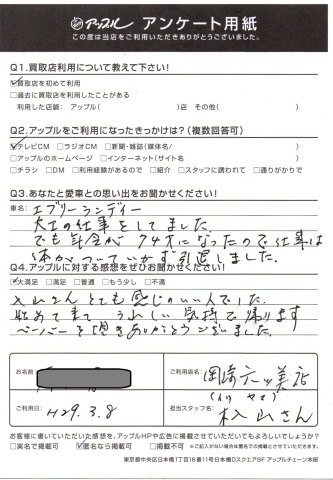 アップル アンケート用紙
この度は当店をご利用いただきありがとうございました。
Q1.買取店利用について教えて下さい!
☑買取店を初めて利用
□過去に買取店を利用したことがある
利用した店舗: アップル( )店 その他( )
Q2.アップルをご利用になったきっかけは?(複数回答可)
☑テレビCM □ラジオCM □新聞・雑誌(媒体名/ )
□アップルのホームページ □インターネット(サイト名 )
□チラシ □DM □利用経験があるので □紹介 □スタッフに誘われて □通りがかりで
Q3.あなたと愛車との思い出をお聞かせください!
車名: エブリーランディー
大工の仕事をしてました。
でも年令が74才になったので仕事は
体がついていかず引退しました。
Q4.アップルに対する感想をぜひお聞かせください!
☑大満足 □満足 □普通 □もう少し □不満
入山さんとても感じのいい人でした。
始めて来て うれしい気持で帰ります
ありがとうございました。
お名前
ご利用店名: 岡崎六ッ美店
ご利用日: H29.3.8
(イリ ヤマ)
担当スタッフ名: 入山さん
お客様に書いていただいた感想を、アップルHPや広告に掲載させていただいてもよろしいでしょうか?
□実名で掲載可 ☑匿名なら掲載可 □掲載不可 ※ご記入がない場合は匿名での掲載とさせていただきます。
東京都中央区日本橋1丁目16番11号日本橋Dスクエア9F アップルチェーン本部